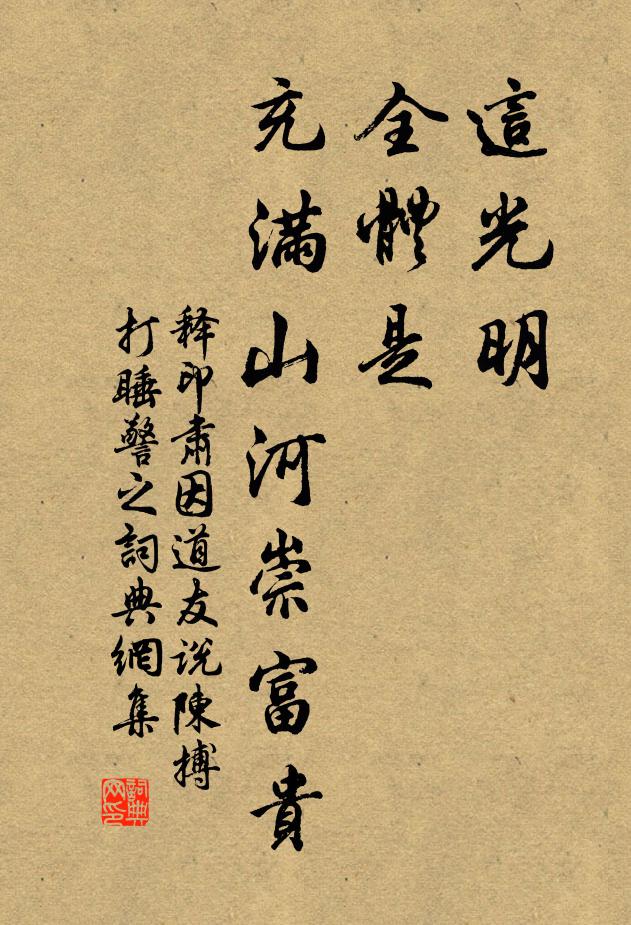 這光明
全體是
充滿山河崇富貴
释印肅因道友说陳摶
打睡警之詞典網集
詞典
网印